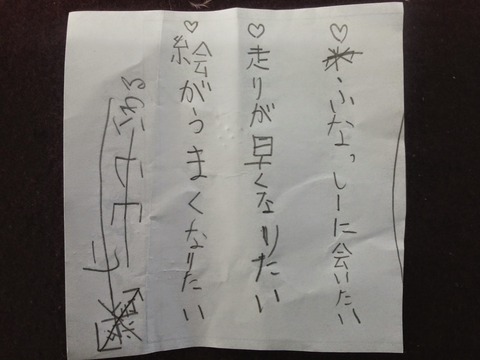 ♡ふなっしーに会いたい
♡走りが早くなりたい
♡絵がうまくなりたい